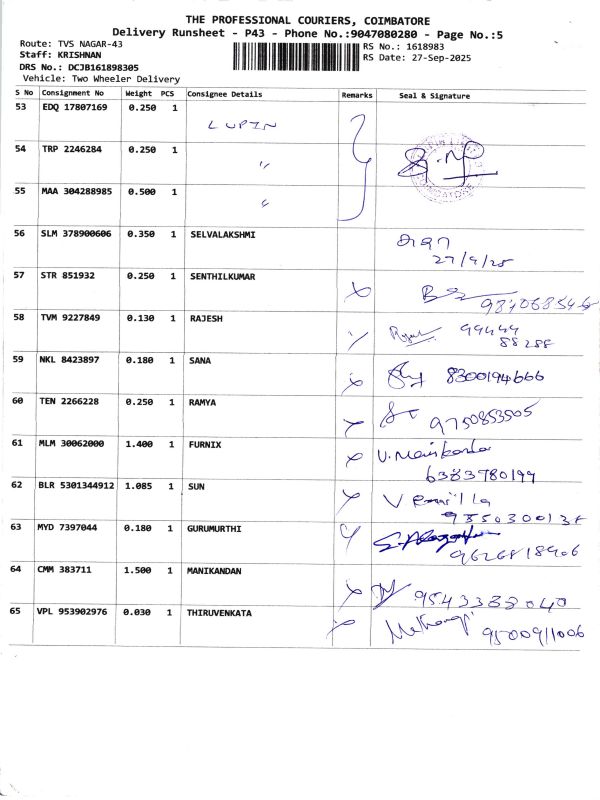 THE PROFESSIONAL COURIERS, COIMBATORE
Delivery Runsheet - P43 - Phone No.:9047080280 - Page No.:5
Route: TVS NAGAR-43
Staff: KRISHNAN
DRS No.: DCJB161898305
Vehicle: Two Wheeler Delivery
RS No.: 1618983
RS Date: 27-Sep-2025
S No Consignment No Weight PCS Consignee Details Remarks Seal & Signature
53 EDQ 17807169 0.250 1 LUPIN
54 TRP 2246284 0.250 1 "
55 MAA 304288985 0.500 1 "
COIMBATORE
56 SLM 378900606 0.350 1 SELVALAKSHMI
27/9/25
57 STR 851932 0.250 1 SENTHILKUMAR
58 TVM 9227849 0.130 1 RAJESH 99444
88288
59 NKL 8423897 0.180 1 SANA 8300194666
60 TEN 2266228 0.250 1 RAMYA 9750853505
61 MLM 30062000 1.400 1 FURNIX V. Manikanda
6383780199
62 BLR 5301344912 1.085 1 SUN
63 MYD 7397044 0.180 1 GURUMURTHI
9626818906
64 CMM 383711 1.500 1 MANIKANDAN 9543388040
65 VPL 953902976 0.030 1 THIRUVENKATA 9500911006